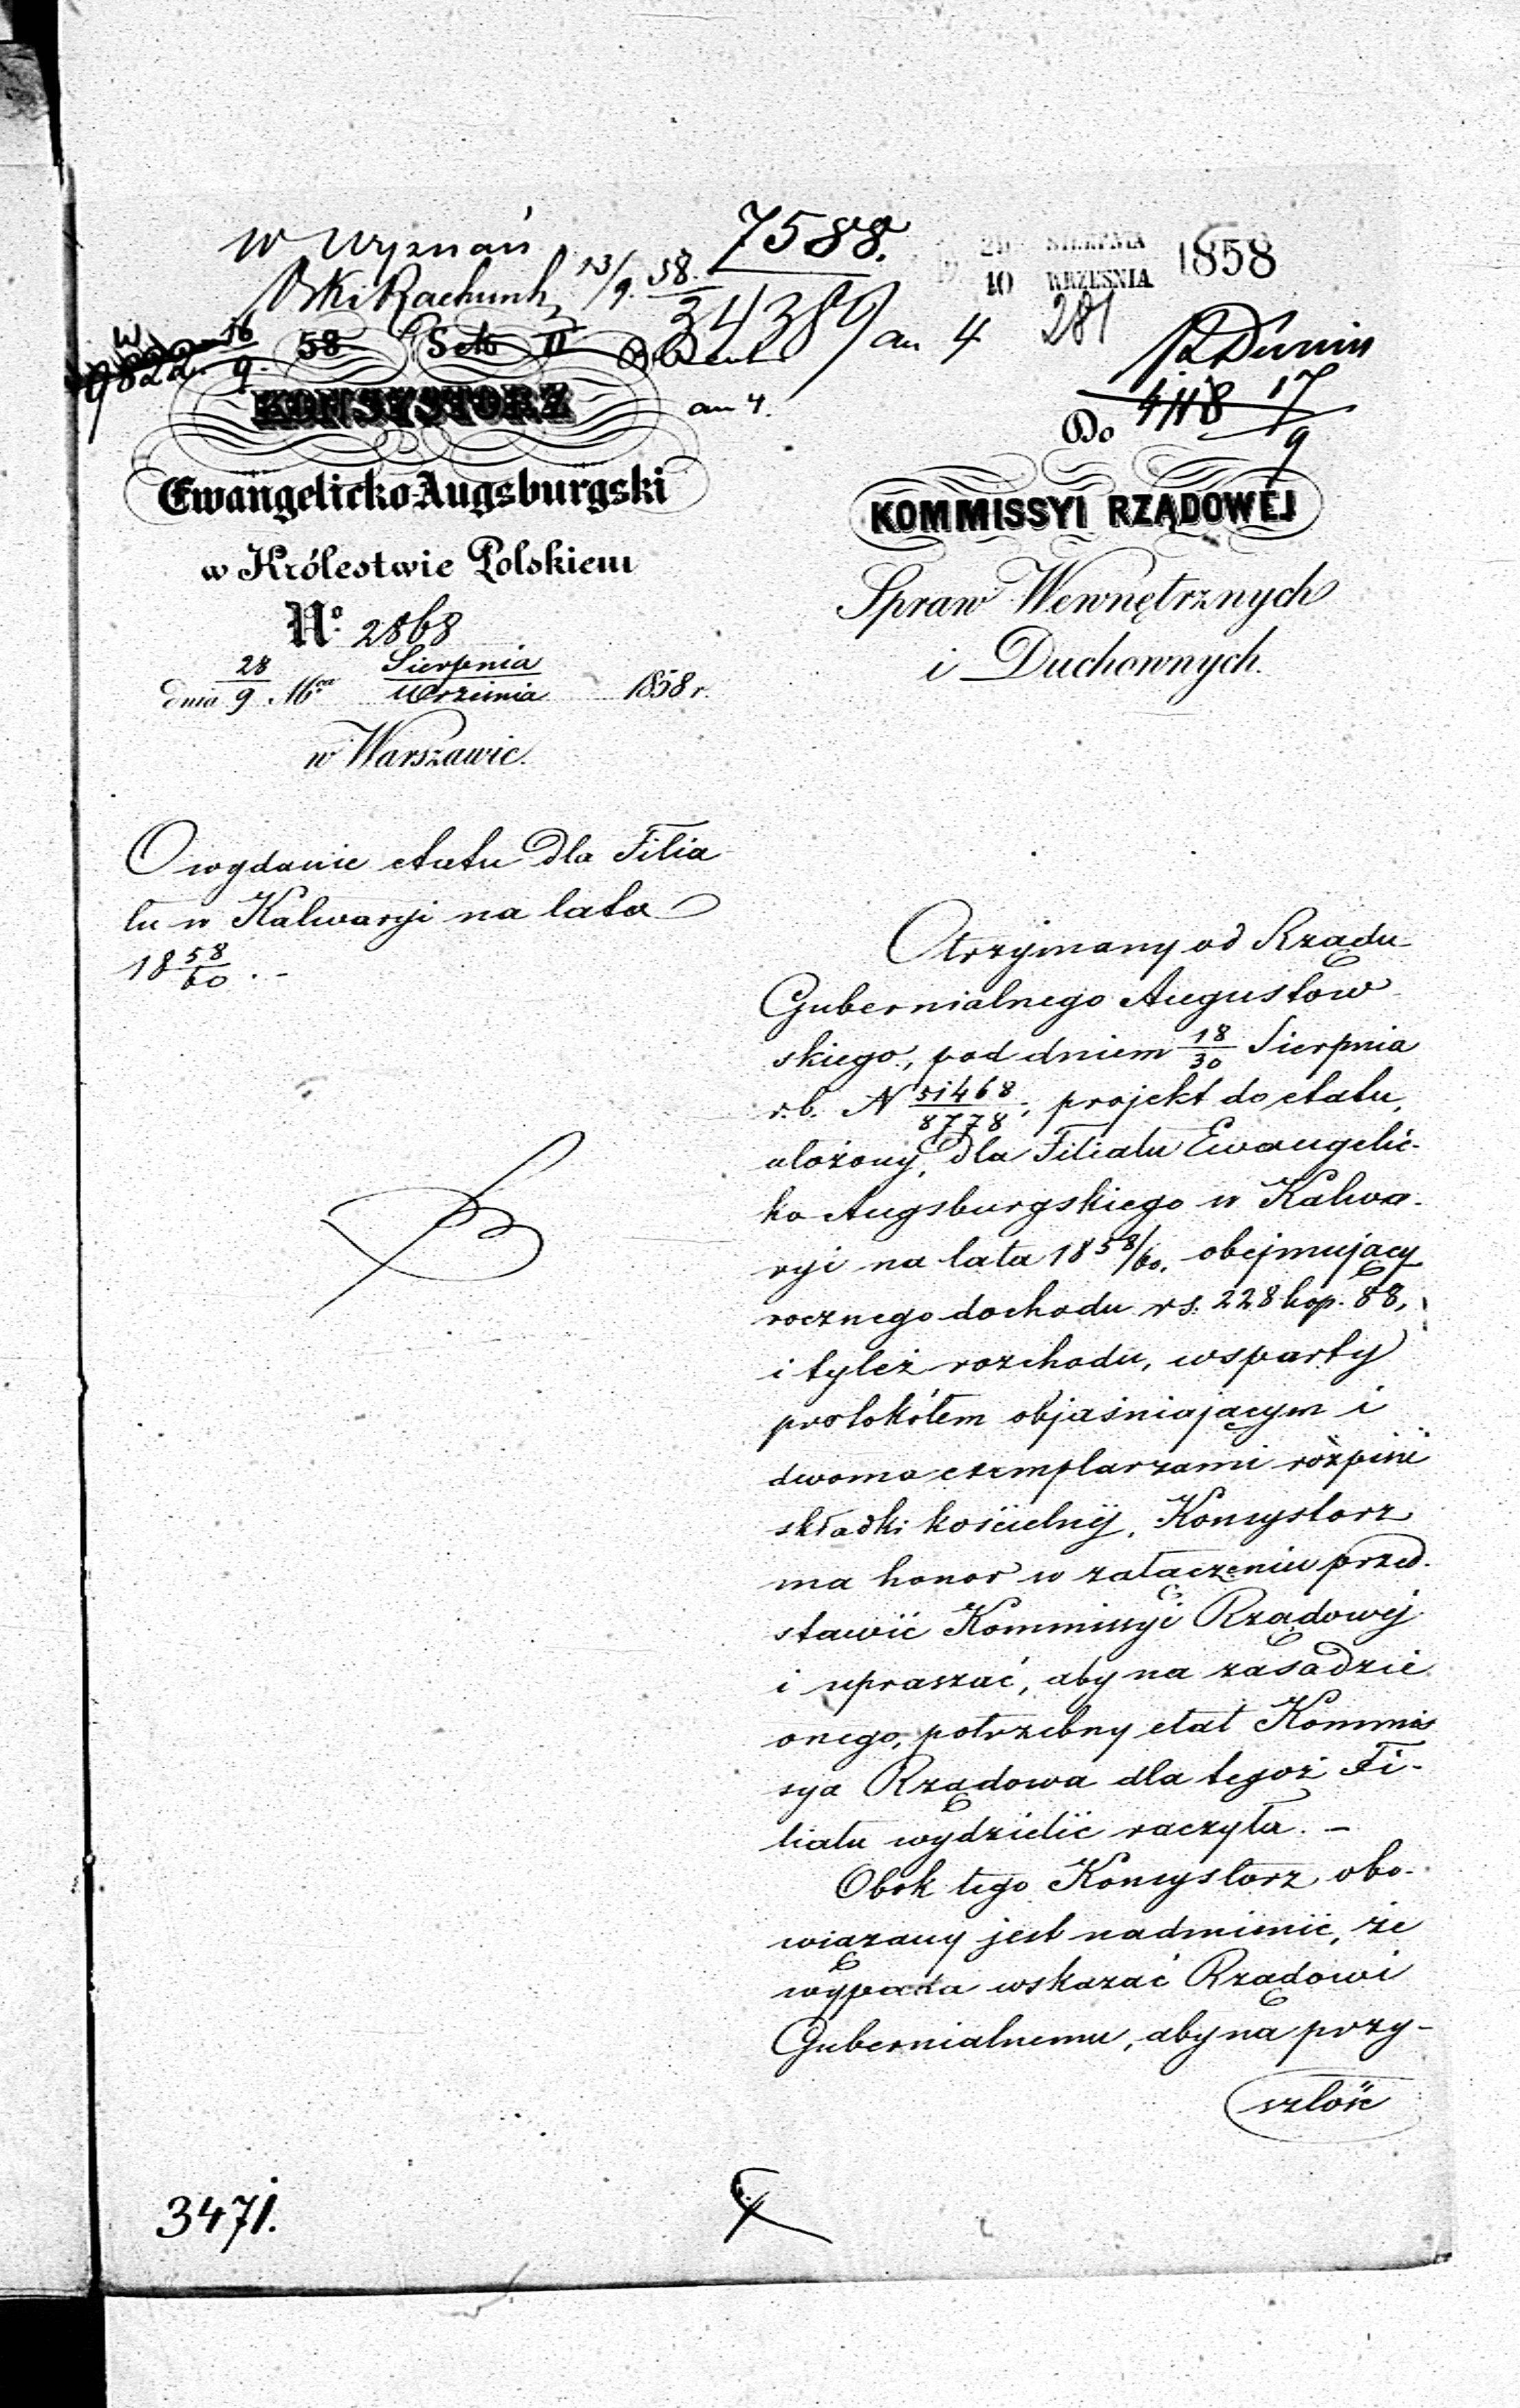 W Wyznań
7588.
SIERPNIA
10 WRZEŚNIA 1858
13/9. 58.
34389 an 4
281
16
9822 9. 58 Sek II
an 4.
4118 17
9
KONSYSTORZ
Ewangelicko-Augsburgski
w Królestwie Polskiem
No. 2868
dnia 28/9 Mca Sierpnia/Września 1858 r.
w Warszawie.
Do
KOMMISSYI RZĄDOWEJ
Spraw Wewnętrznych
i Duchownych.
O wydanie etatu dla Filia
łu w Kalwaryi na lata
18 58/60 . -
Otrzymany od Rządu
Gubernialnego Augustow
skiego, pod dniem 18/30 Sierpnia
r.b. N 51468/8778, projekt do etatu,
ułożony, dla Filiału Ewangelic-
ko Augsburgskiego w Kalwa-
ryi na lata 18 58/60. obejmujący
rocznego dochodu rs. 228 kop. 88,
i tyleż rozchodu, wsparty
protokółem objaśniającym i
dwoma exemplarzami rozpisu
składki kościelnej, Konsystorz
ma honor w załączeniu przed-
stawić Kommissyi Rządowej
i upraszać, aby na zasadzie
onego, potrzebny etat Kommis
sya Rządowa dla tegoż Fi-
liału wydzielić raczyła. -
Obok tego Konsystorz obo-
wiązany jest nadmienić, że
wypada wskazać Rządowi
Gubernialnemu, aby na przy-
szłość
3471.